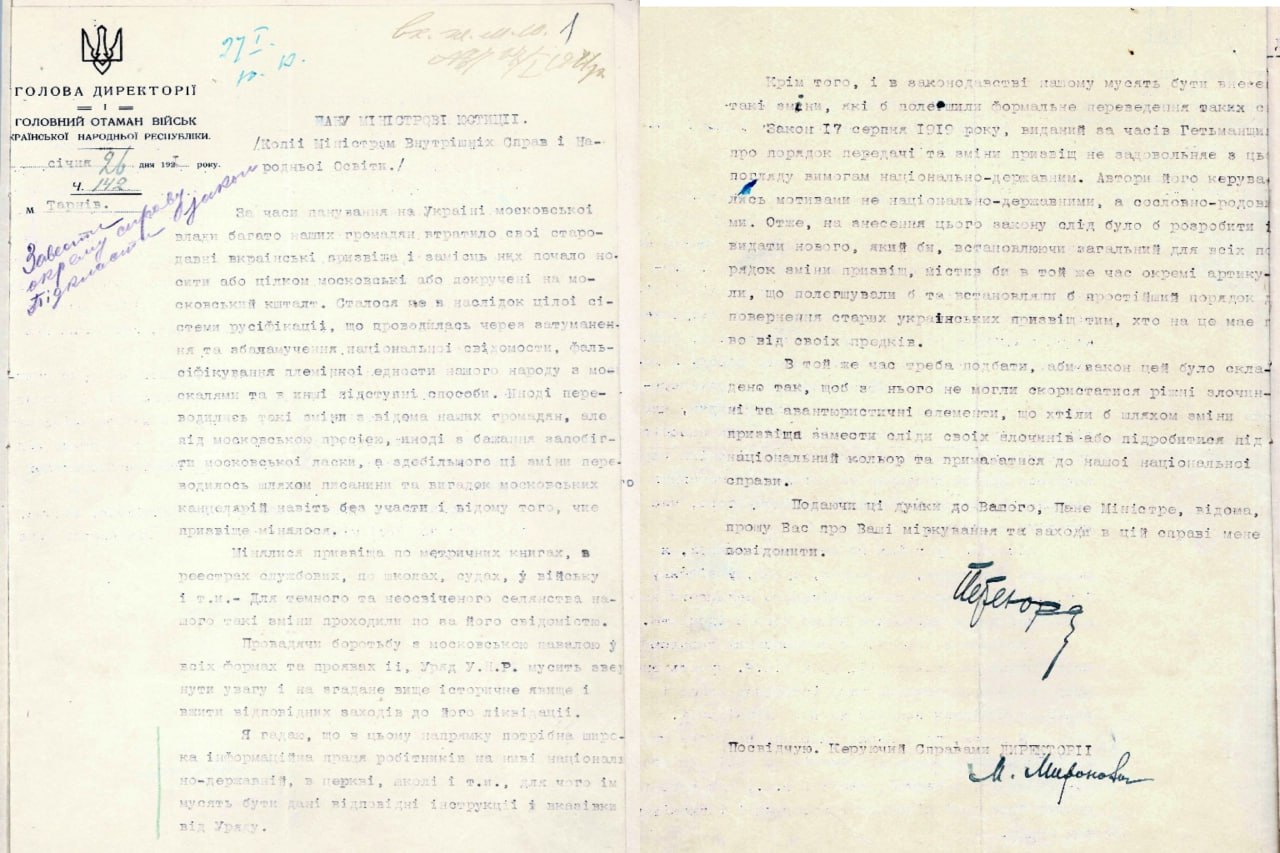 27 I
ГОЛОВА ДИРЕКТОРІЇ
І
ГОЛОВНИЙ ОТАМАН ВІЙСЬК
КРАЇНСЬКОЇ НАРОДНЬОЇ РЕСПУБЛІКИ.
січня 26 дня 192 року.
Ч. 142
м Тарнів.
Завести
окрему справу.
Підкласти закон
ПАНУ МІНІСТРОВІ ЮСТИЦІЇ.
/Копії Міністрам Внутрішніх Справ і На-
родньої Освіти./
За часи панування на Україні московської
влади багато наших громадян втратило свої старо-
давні вкраінські призвіща і замісць них почало но-
сити або цілком московські або покручені на мо-
сковський кшталт. Сталося це в наслідок цілої сі-
стеми русіфікації, що проводилась через затуманен-
ня та збаламучення національної свідомости, фаль-
сіфікування племінної едности нашого народу з мо-
скалями та в инші підступні способи. Иноді пере-
водились такі зміни з відома наших громадян, але
під московською пресією, иноді з бажання запобіг-
ти московської ласки, а здебільшого ці зміни пере-
водилось шляхом писанини та вигадок московських
канцелярій навіть без участи і відому того, чие
призвіще мінялося.
Мінялися призвіща по метричних книгах, в
реестрах службових, по школах, судах, у війську
і т.и.- Для темного та неосвіченого селянства на-
шого такі зміни проходили по за його свідомістю.
Провадячи боротьбу з московською навалою у
всіх формах та проявах ії, Уряд У.Н.Р. мусить звер
нути увагу і на згадане вище історичне явище і
вжити відповідних заходів до його ліквідації.
Я гадаю, що в цьому напрямку потрібна широ-
ка інформаційна праця робітників на ниві націонал
но-державній, в церкві, школі і т.и., для чого ім
мусять бути дані відповідні інструкції і вказівки
від Уряду.
Крім того, і в законодавстві нашому мусять бути внесе
такі зміни, які б полегшили формальне переведення таких с
Закон 17 серпня 1919 року, виданий за часів Гетьманщи
про порядок передачі та зміни призвіщ не задовольняе з ць
погляду вимогам національно-державним. Автори його керува
лись мотивами не національно-державними, а сословно-родов
ми. Отже, на знесення цього закону слід було б розробити і
видати нового, який би, встановлюючи загальний для всіх по
рядок зміни призвіщ, містив би в той же час окремі артику-
ли, що полегшували б та встановляли б простійший порядок д
повернення старих українських призвіщ тим, хто на це має п
во від своїх предків.
В той же час треба подбати, аби закон цей було скла-
дено так, щоб з нього не могли скористатися ріжні злочин-
ні та авантюристичні елементи, що хтіли б шляхом зміни
призвіща замести сліди своїх злочинів або підробитися під
національний кольор та примазатися до нашої національної
справи.
Подаючи ці думки до Вашого, Пане Міністре, відома,
прошу Вас про Ваші міркування та заходи в цій справі мене
повідомити.
Петлюра
Посвідчую. Керуючий Справами ДИРЕКТОРІІ
М. Миронович